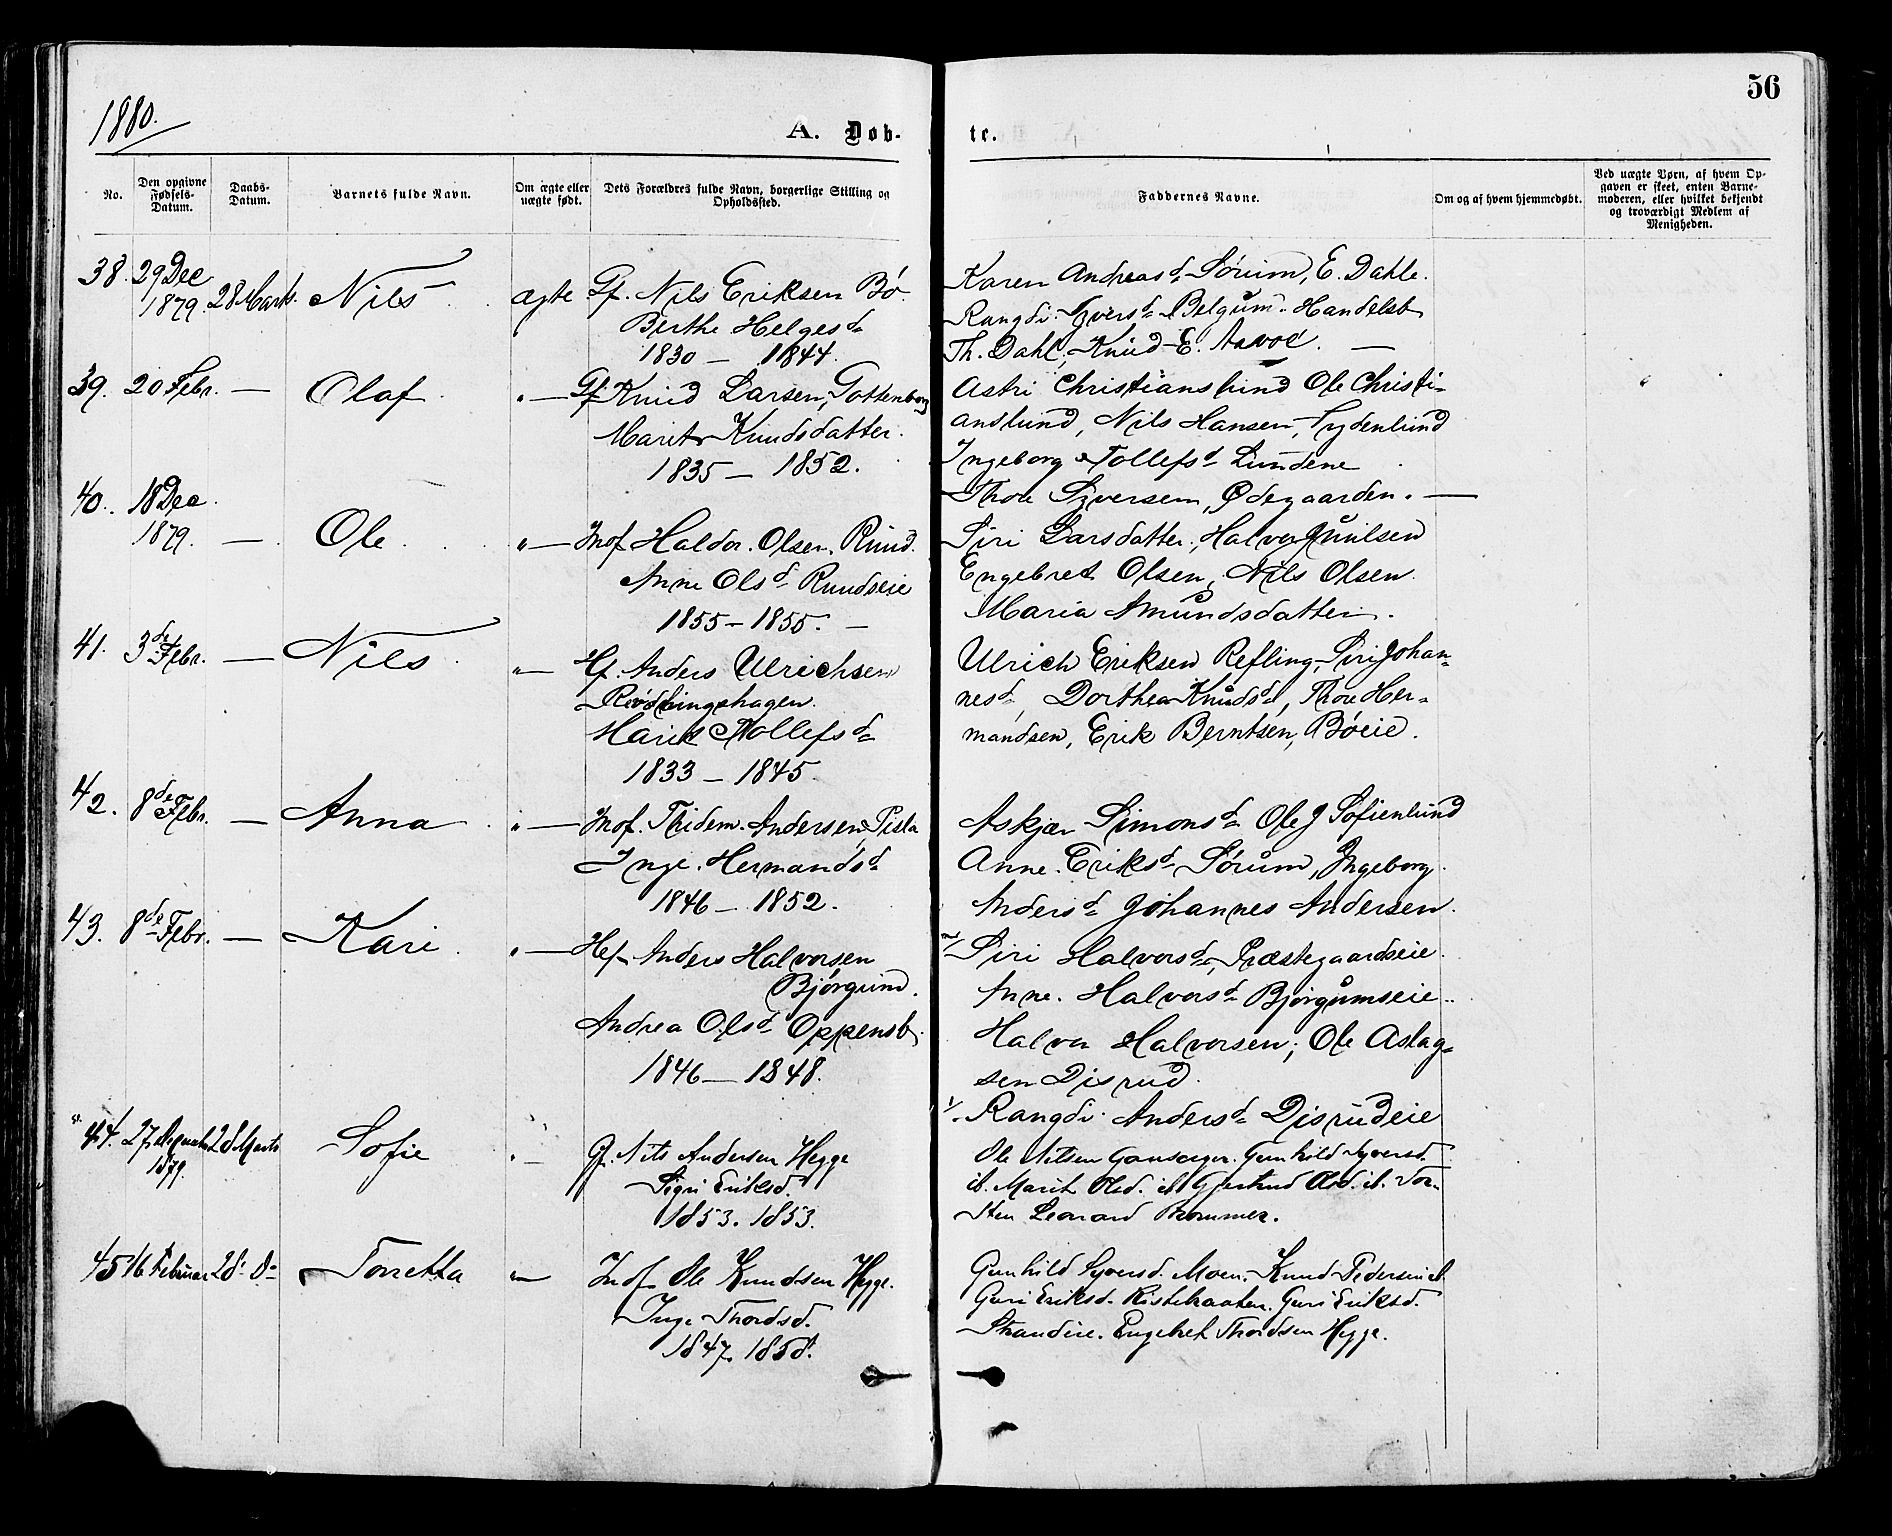 56
1880.
A. Døb-
te.
No.
Den opgivne Fødsels-Datum.
Daabs-Datum.
Barnets fulde Navn.
Om ægte eller uægte født.
Dets Forældres fulde Navn, borgerlige Stilling og Opholdssted.
Faddernes Navne.
Om og af hvem hjemmedøbt.
Ved uægte Børn, af hvem Op-
gaven er skeet, enten Barne-
moderen, eller hvilket bekjendt
og troværdigt Medlem af
Menigheden.
38. 29 Dec 1879. 28 Marts. Nils ægte Gf. Nils Eriksen Bø.
Berthe Helgesd.
1830 – 1844.
Karen Andreasd. Sørum, E. Dahle.
Rangdi Syversd. Belgum. Handelsb
Th. Dahl, Knud E. Aavoe. —
39. 20 Febr. — Olaf. "— Gf Knud Larsen, Gottenborg
Marit Knudsdatter.
1835 – 1852.
Astri Christianslund Ole Christi-
anslund, Nils Hansen, Sydenlund
Ingeborg Tollefsd. Lundene
Thore Syversen, Ødegaarden. —
40. 18 Dec. 1879. — Ole. "— Inof Haldor Olsen Ruud.
Anne Olsd. Ruudseie
1855 – 1855. –
Siri Larsdatter, Halvor
Engebret Olsen, Nils Olsen.
Maria Amundsdatter.
41. 3de Febr. — Nils "— Hf. Anders Ulrichsen
Marit Tollefsd.
1833 – 1845.
Ulrich Eriksen Refling, Siri Johan-
nesd, Dorthea Knudsd, Thore Her-
mandsen, Erik Berntsen, Bøeie.
42. 8de Febr. — Anna "— Inof. Thidem. Andersen,
Inge. Hermandsd
1846 – 1852.
Askjær Simonsd. Ole J Sofienlund
Anne. Eriksd. Sørum, Ingeborg
Andersd. Johannes Andersen.
43. 8de Febr. — Kari "— Anders Halvorsen
Bjørgum.
Andrea Olsd. Oppensb.
1846 – 1848.
Siri Halvorsd, Præstegaardseie.
Anne. Halvorsd. Bjørgumseie..
Halvor Halvorsen, Ole Aslag-
sen Disrud.
44. 27 1879. 28 Marts Sofie "— Gf. Nils Andersen Hegge
Sigri Eriksd.
1853. 1853.
Rangdi Andersd. Disrudeie
Ole Nilsen Gunhild Syversd.
ib. Marit Olsd. ib Gjertrud Olsd. ib. Tor-
sten Leonard
45 16 Februar 28. Do Torretta "— Inof Ole Knudsen Hegge.
Inge Thordsd.
1847. 1858.
Gunhild Syversd. Moen. Knud Pedersen ib.
Guri Eriksd. Guri Eriksd.
Strandeie. Engebret Thordsen Hegge.